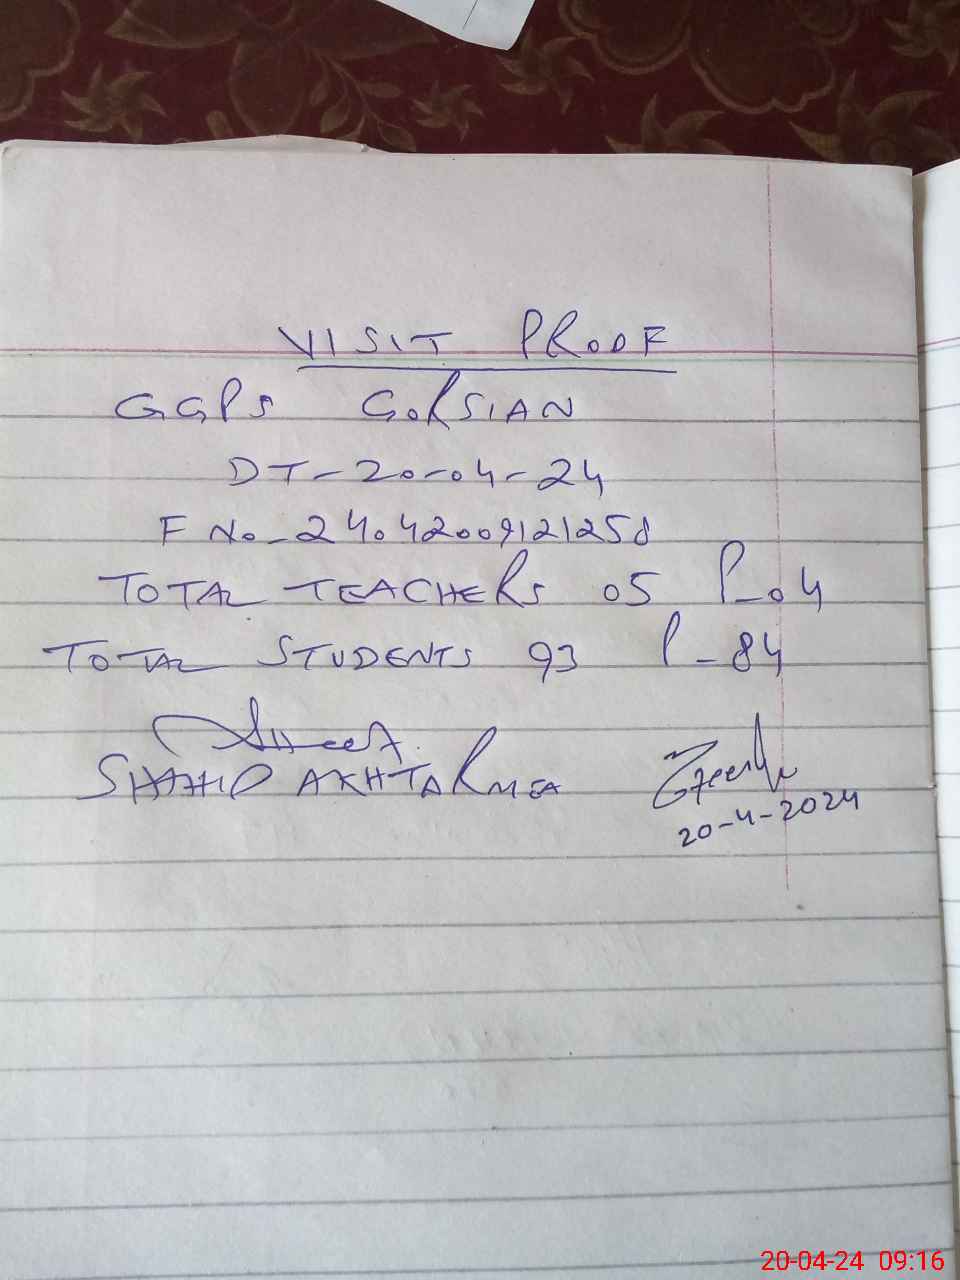 VISIT PROOF
GGPS GORSIAN
DT-20-04-24
F No-24042009121258
TOTAL TEACHERS 05 P-04
TOTAL STUDENTS 93 P-84
SHAHID AKHTAR MEA
20-4-2024
20-04-24 09:16